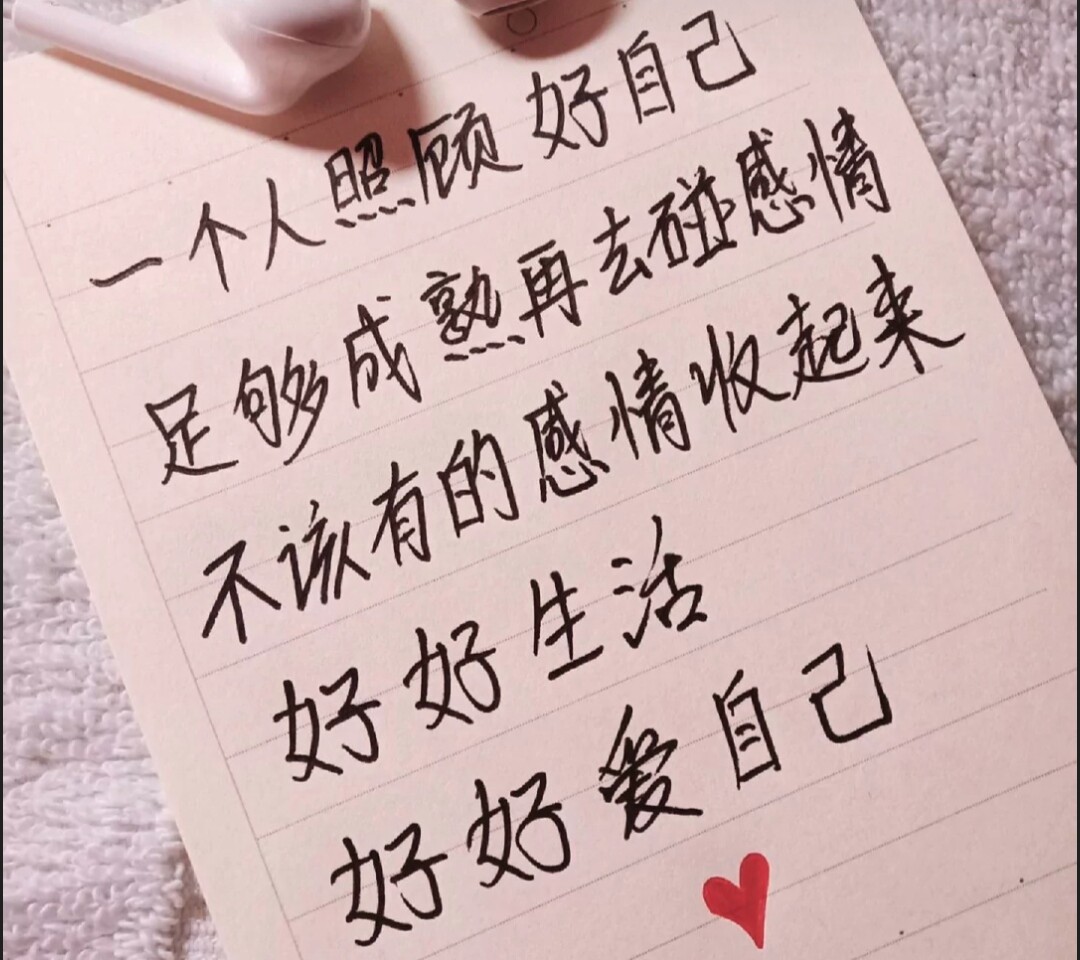 一个人照顾好自己
足够成熟再去碰感情
不该有的感情收起来
好好生活
好好爱自己